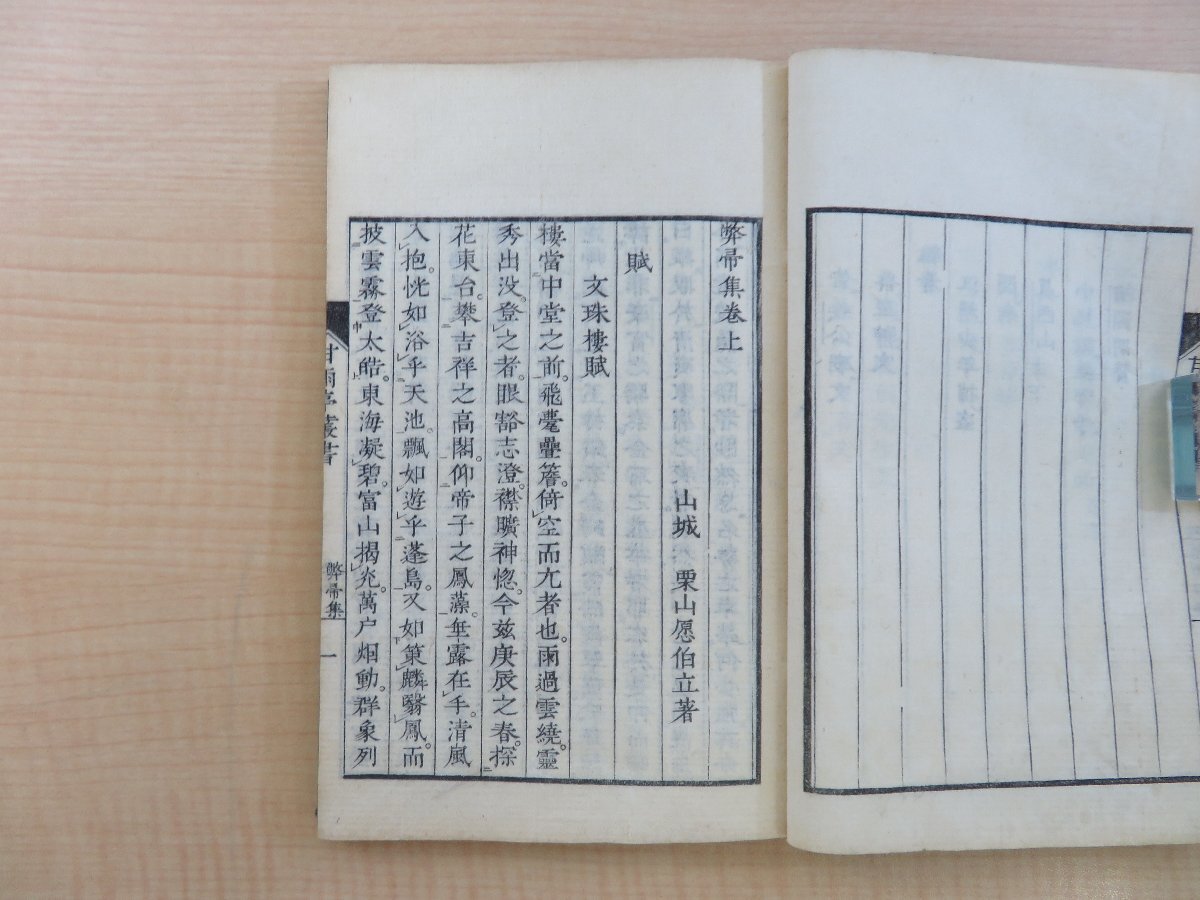 弊帚集卷上
山城 栗山愿伯立著
賦
文珠樓賦
樓當中堂之前。飛甍疊簷。倚空而冘者也。雨過雲繞。靈
秀出沒。登之者。眼豁志澄。襟曠神惚。今茲庚辰之春。探
花東台。攀吉祥之高閣。仰帝子之鳳藻。垂露在手。清風
入抱。恍如浴乎天池。飄如遊乎蓬島。又如策麟翳鳳。而
披雲霧登太皓。東海凝碧。富山揭充。萬户烟動。群象列
甘雨亭叢書
弊帚集
一